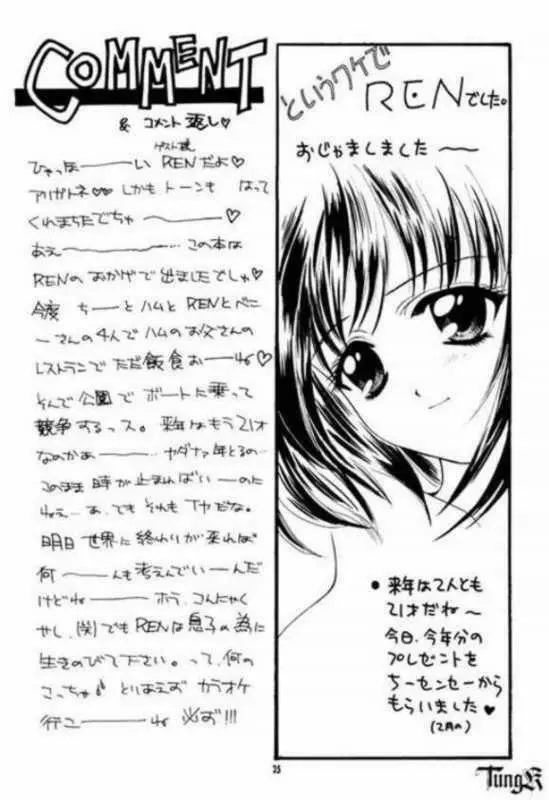 COMMENT
& コメント 返し♡
ひゃっほーーい RENだよ♡
アリガトネ♡♡ しかも トーンも はって
くれまちたでちゃ ーーー♡
あえーーー… この本は
RENの おかげで出ましたでしゅ♡
今度 ちーと ハムと RENと べに
ーさんの4人で ハムの お父さんの
レストランで ただ飯食おーね♡
そんで 公園で ボートに 乗って
競争するっス。来年はもう21才
なのかぁーーー ヤダナァ 年とるの…
このまま 時が 止まればいーのに
ねぇ… あ、でも それも イヤだな。
明日 世界に 終わりが 来れば
何ーーんも考えんでいーんだ
けどねーーー ホラ、コンにゃく
やし、(笑)でも RENは 息子の為に
生きのびて下さい。って、何の
こっちゃ♪ とりあえず カラオケ
行こーーーね 必ず!!!
というワケで
RENでした。
おじゃましました 〜
● 来年は2人とも
21才だね〜
今日、今年分の
プレゼントを
ちーセンセーから
もらいました♥
(2月の)
25
TungK